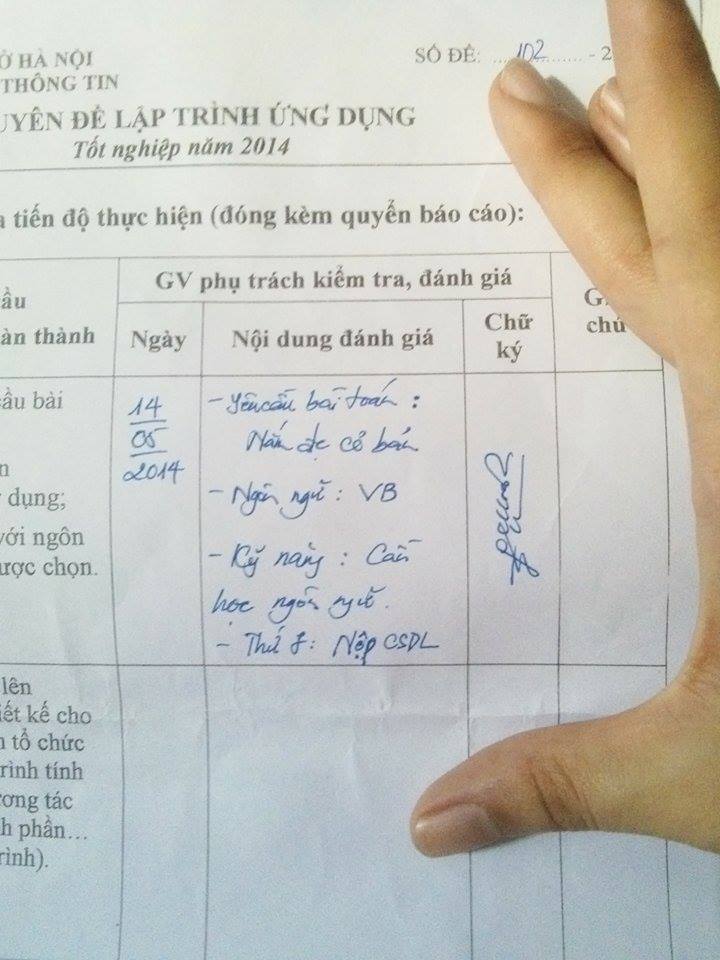 Ở HÀ NỘI
SỐ ĐỀ: ....102.......... - 2
THÔNG TIN
UYÊN ĐỀ LẬP TRÌNH ỨNG DỤNG
Tốt nghiệp năm 2014
a tiến độ thực hiện (đóng kèm quyển báo cáo):
ầu
àn thành
GV phụ trách kiểm tra, đánh giá
Ngày
Nội dung đánh giá
Chữ
ký
G
chú
ầu bài
n
dụng;
với ngôn
ược chọn.
14
05
2014
- Yêu cầu bài toán :
Nắm đc cơ bản
- Ngôn ngữ : VB
- Kỹ năng : Cần
học ngôn ngữ.
- Thứ 8: Nộp CSDL
lên
iết kế cho
n tổ chức
rình tính
ơng tác
h phần…
rình).